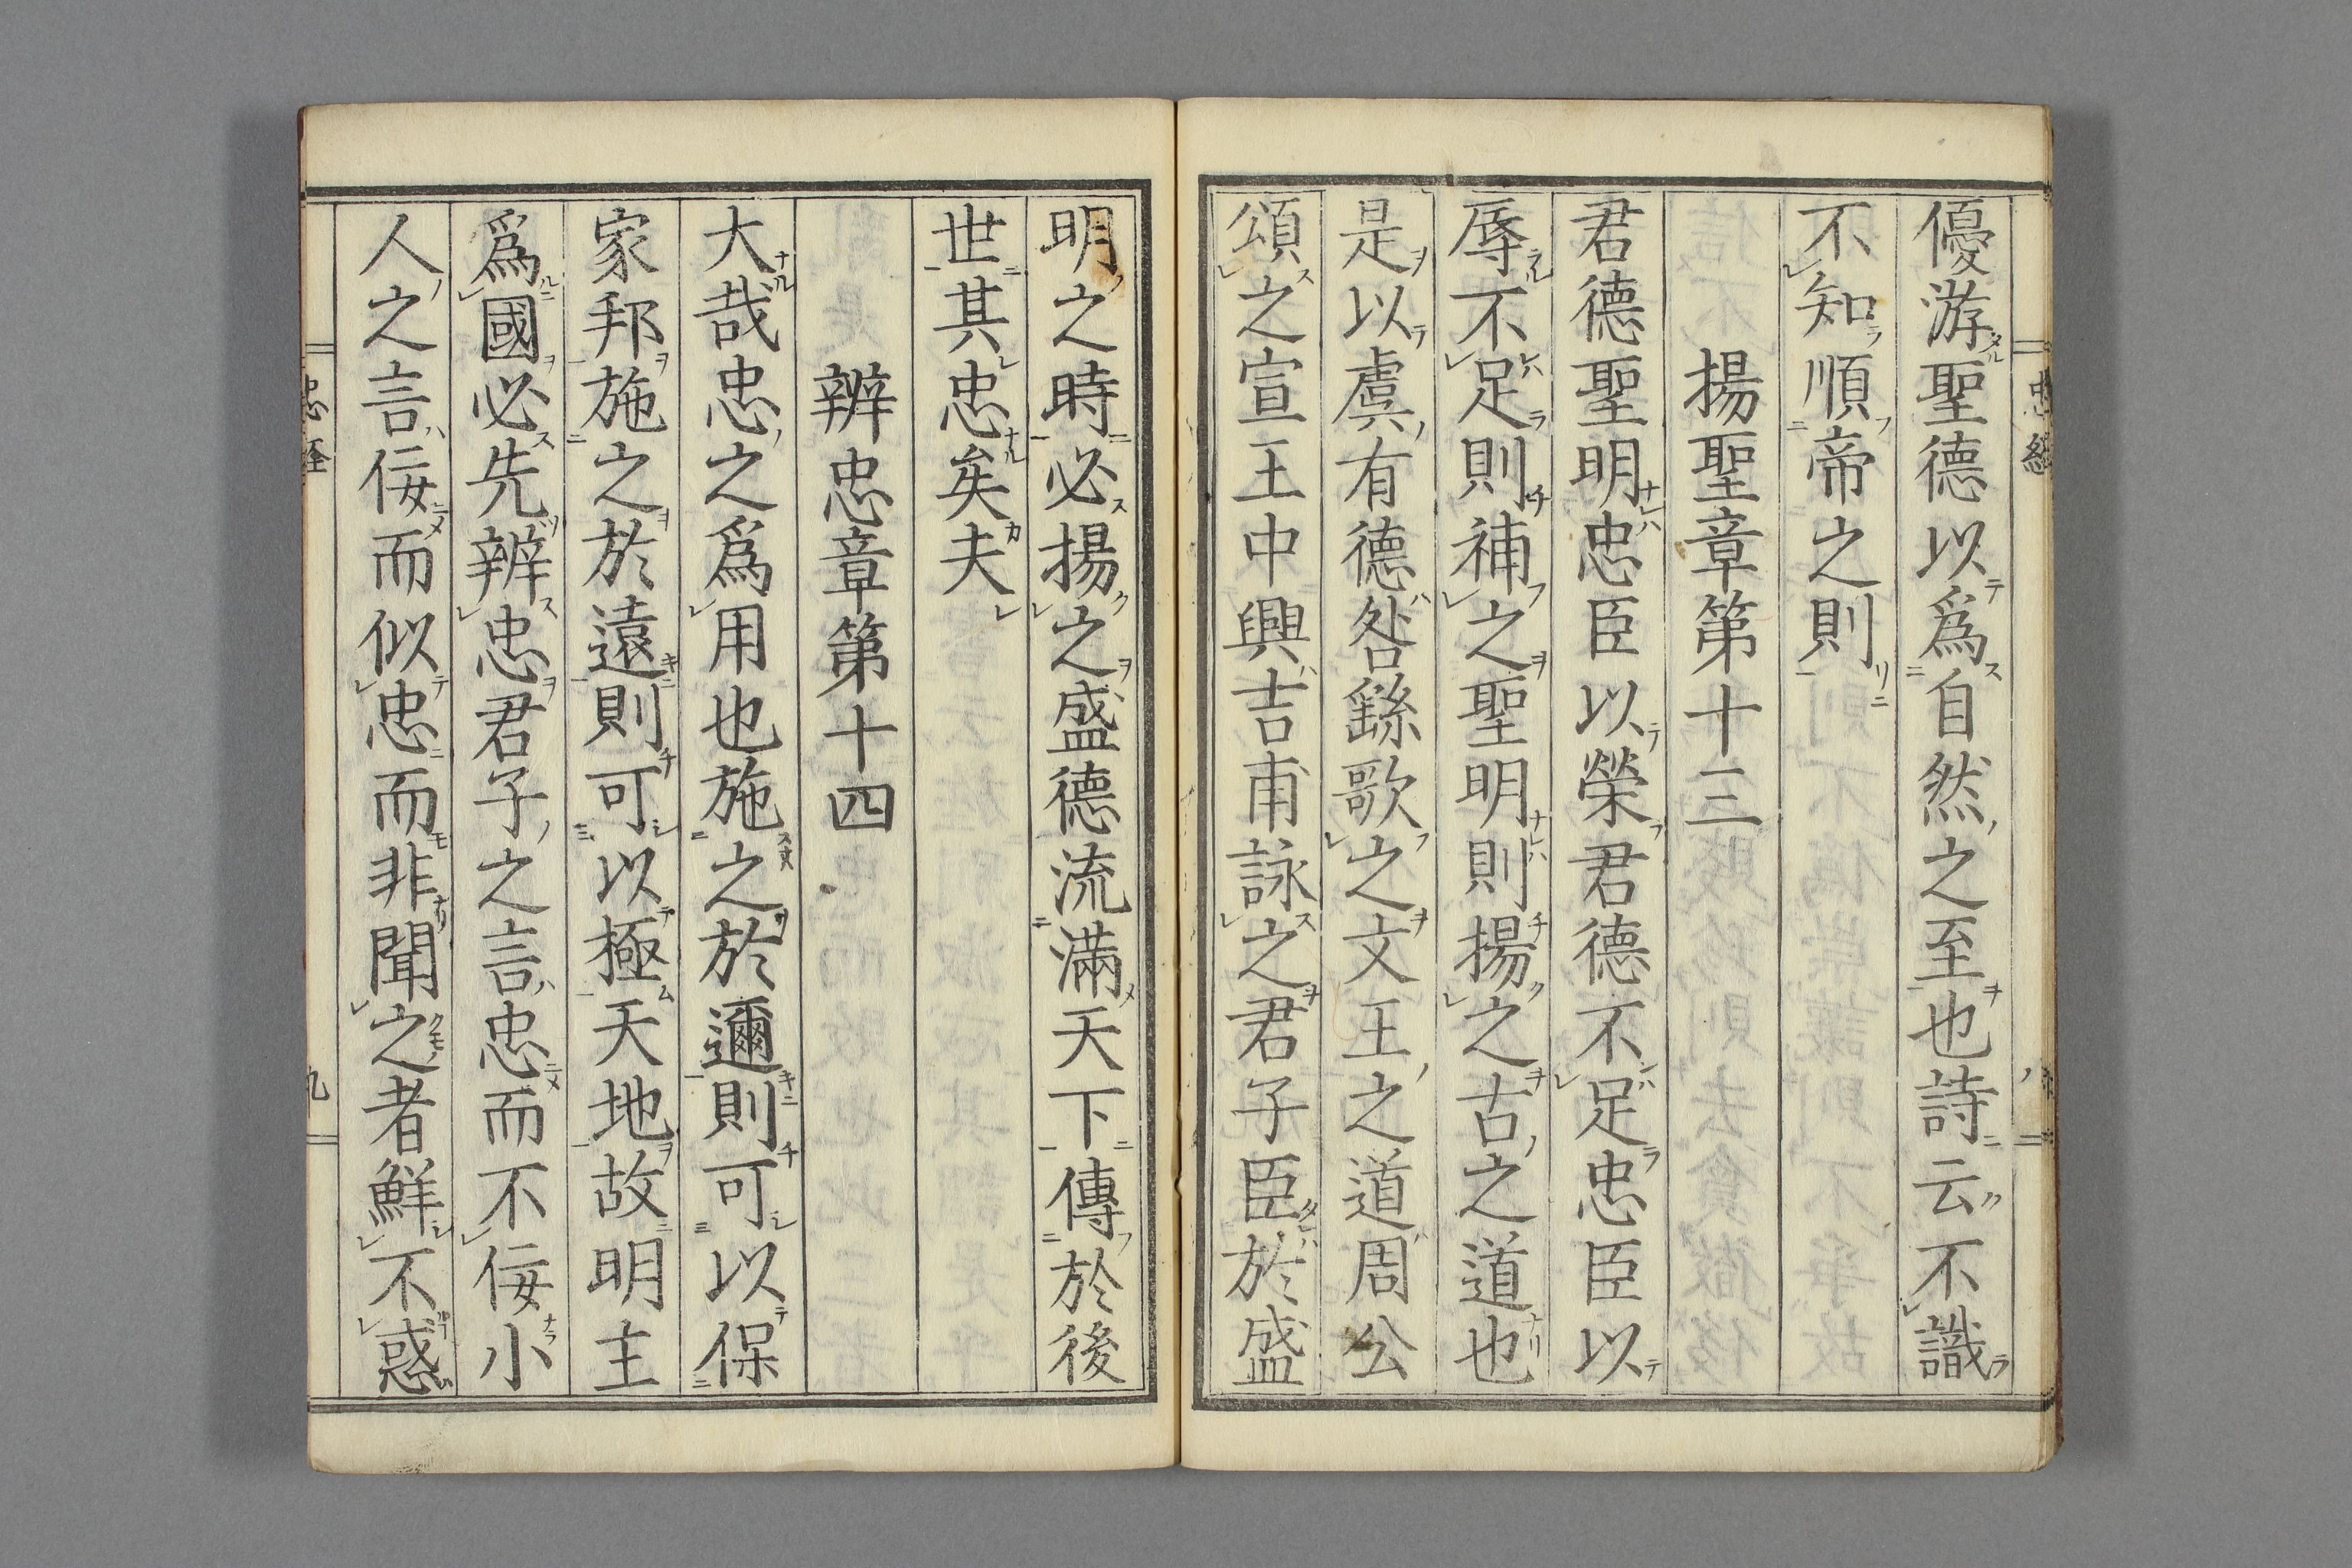 優游聖德以爲自然之至也詩云不識
不知順帝之則
揚聖章第十三
君德聖明忠臣以榮君德不足忠臣以
辱不足則補之聖明則揚之古之道也
是以虞有德咎繇歌之文王之道周公
頌之宣王中興吉甫詠之君子臣於盛
明之時必揚之盛德流滿天下傳於後
世其忠矣夫
辨忠章第十四
大哉忠之爲用也施之於邇則可以保
家邦施之於遠則可以極天地故明主
爲國必先辨忠君子之言忠而不佞小
人之言佞而似忠而非聞之者鮮不惑
忠經
九